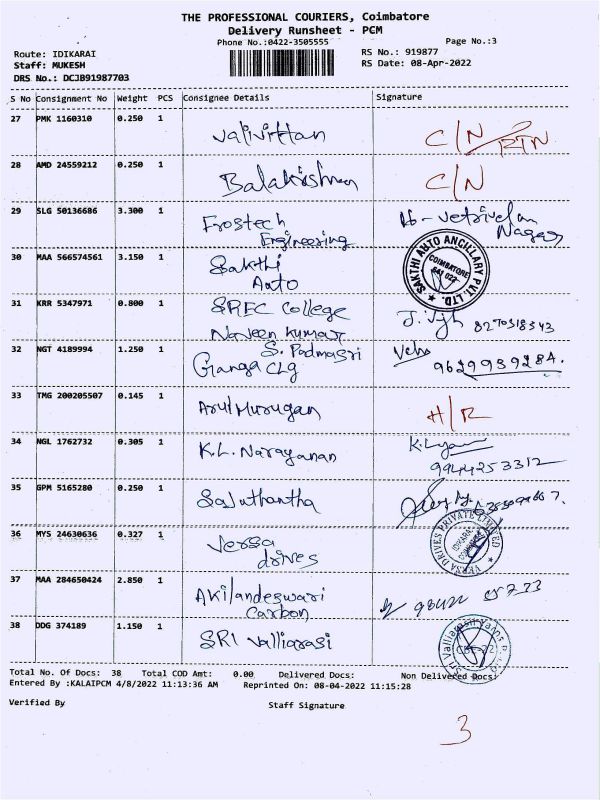 THE PROFESSIONAL COURIERS, Coimbatore
Delivery Runsheet - PCM
Phone No.:0422-3505555
Page No.:3
Route: IDIKARAI
RS No.: 919877
Staff: MUKESH
RS Date: 08-Apr-2022
DRS No.: DCJB91987703
S No Consignment No Weight PCS Consignee Details Signature
27 PMK 1160310 0.250 1
Valivittan C/N RTN
28 AMD 24559212 0.250 1
Balakrishnan C/N
29 SLG 50136686 3.300 1
Frostech
Engineering
Nagar
30 MAA 566574561 3.150 1
Sakthi
Auto
SAKTHI AUTO ANCILLARY PVT. LTD.
COIMBATORE
641 022
31 KRR 5347971 0.800 1
SREC College
Naveen Kumar
8270318343
32 NGT 4189994 1.250 1
S. Padmasri
Ganga Clg
9629939284.
33 TMG 200205507 0.145 1
Arul Murugan H/R
34 NGL 1762732 0.305 1
K.L. Narayanan
9944253312
35 GPM 5165280 0.250 1
36 MYS 24630636 0.327 1
Versa
drives
VERSA DRIVES PRIVATE LIMITED
37 MAA 284650424 2.850 1
Akilandeswari
Carbon
38 DDG 374189 1.150 1
SRI Valliarasi
Total No. Of Docs: 38 Total COD Amt: 0.00 Delivered Docs: Non Delivered Docs:
Entered By :KALAIPCM 4/8/2022 11:13:36 AM Reprinted On: 08-04-2022 11:15:28
Verified By Staff Signature
3